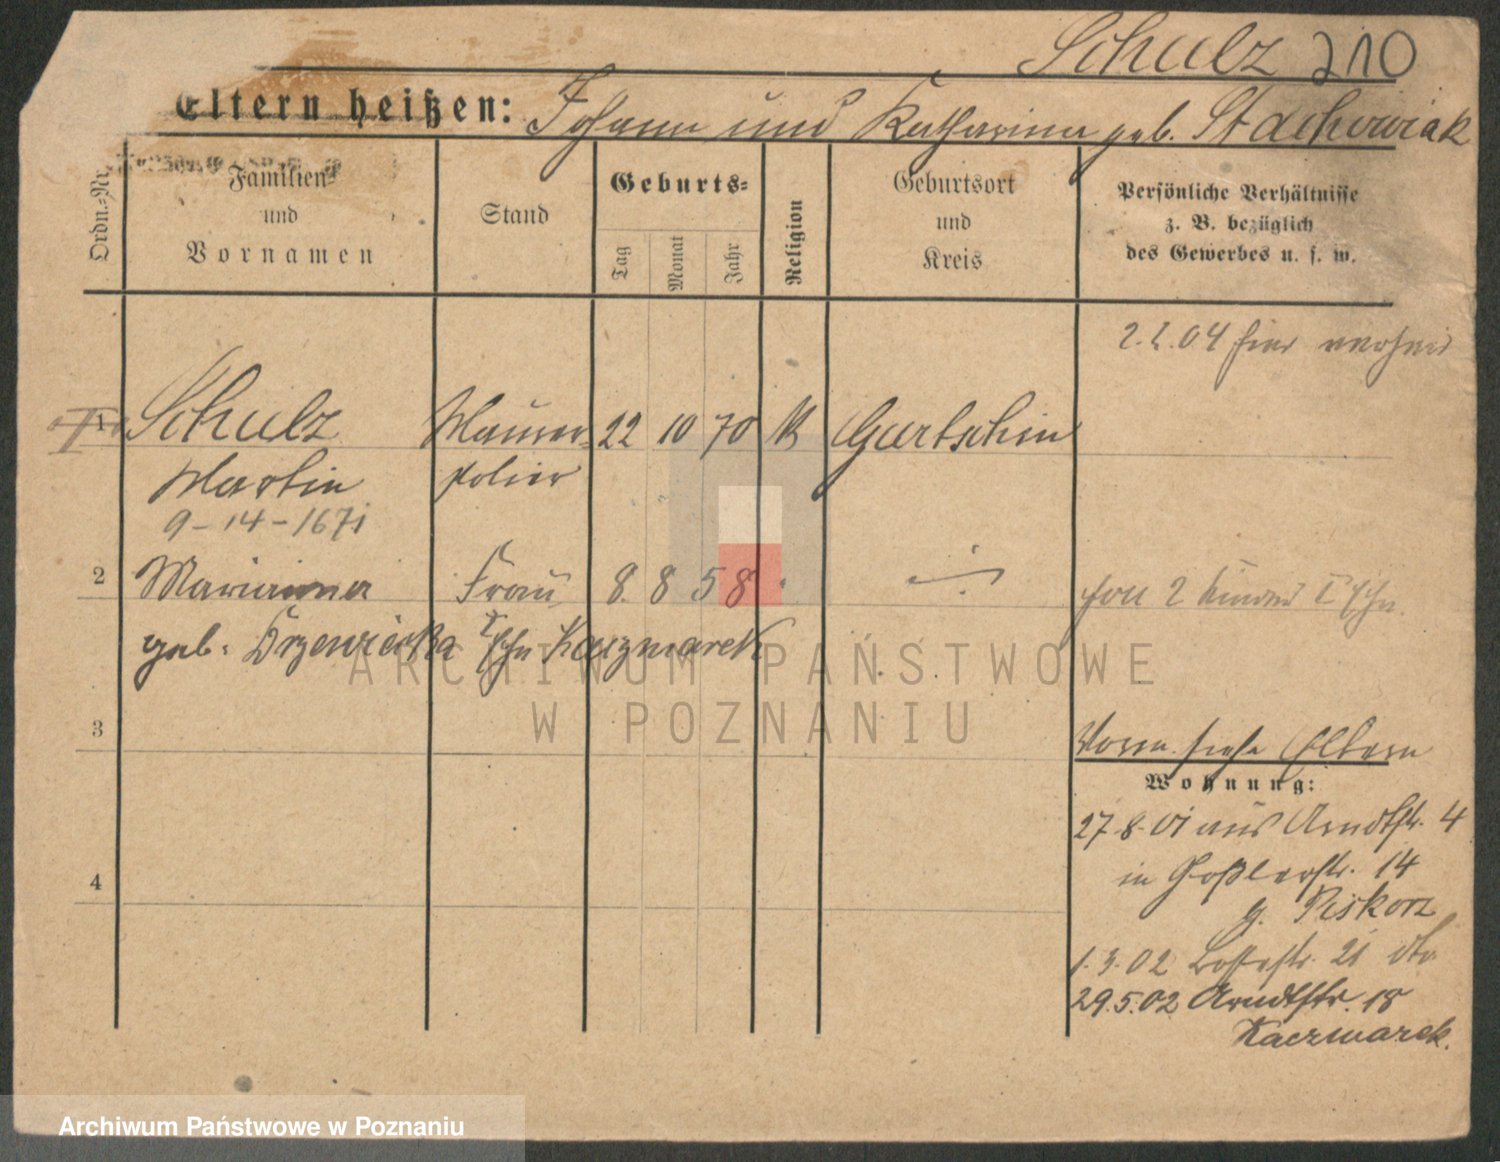 Schulz 210
Eltern heißen: Johann und Katharina geb. Stachowiak
Ordn.-Nr.
Familien-
und
Vornamen
Stand
Geburts-
Tag
Monat
Jahr
Religion
Geburtsort
und
Kreis
Persönliche Verhältnisse
z. B. bezüglich
des Gewerbes u. s. w.
2.2.04 hier
1 Schulz Maurer- 22 10 70 K Gurtschin
Martin polier
9-14-1671
2 Marianna Frau 8. 8 58
2 Kinder I Ehe
geb. Drzewiecka I Ehe Kaczmarek
ARCHIWUM PAŃSTWOWE
W POZNANIU
3
Vorm. siehe Eltern
Wohnung:
27.8.01 aus Arndtstr. 4
in Goßlerstr. 14
4
b. Piskorz
1.3.02 21 dto
29.5.02 Arndtstr. 18
Kaczmarek.
Archiwum Państwowe w Poznaniu